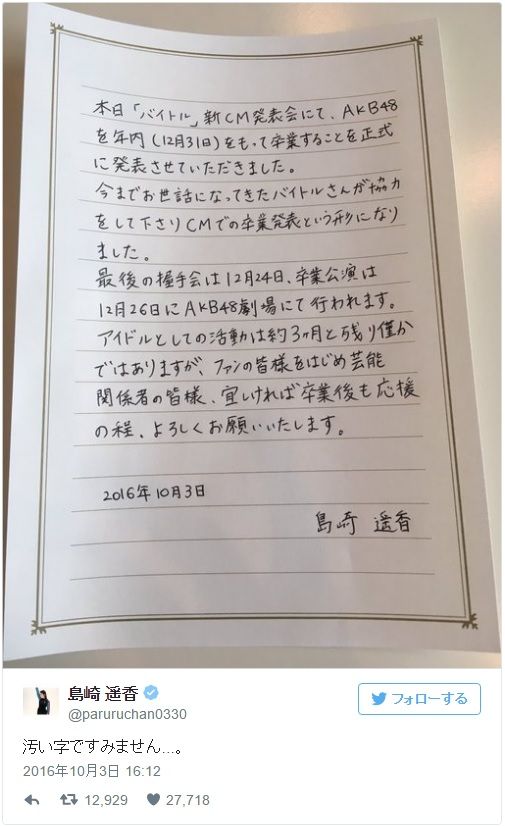 本日「バイトル」新CM発表会にて、AKB48
を年内(12月31日)をもって卒業することを正式
に発表させていただきました。
今までお世話になってきたバイトルさんが協力
をして下さりCMでの卒業発表という形になり
ました。
最後の握手会は12月24日、卒業公演は
12月26日にAKB48劇場にて行われます。
アイドルとしての活動は約3ヶ月と残り僅か
ではありますが、ファンの皆様をはじめ芸能
関係者の皆様、宜しければ卒業後も応援
の程、よろしくお願いいたします。
2016年10月3日
島崎 遥香
島崎 遥香
フォローする
@paruruchan0330
汚い字ですみません…。
2016年10月3日 16:12
12,929
27,718